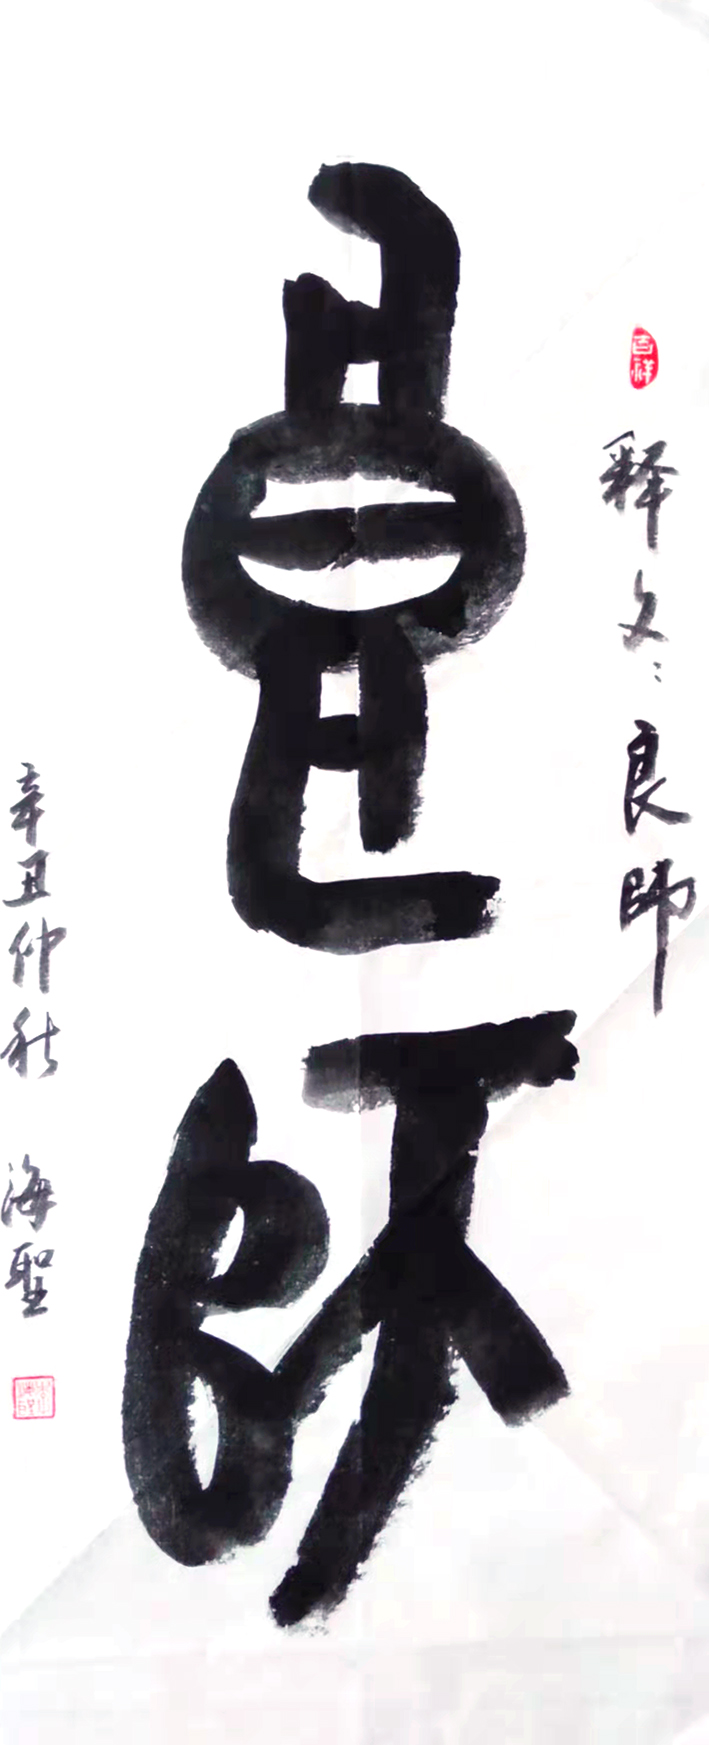 吉祥
释文：良师
良師
辛丑仲秋 海聖